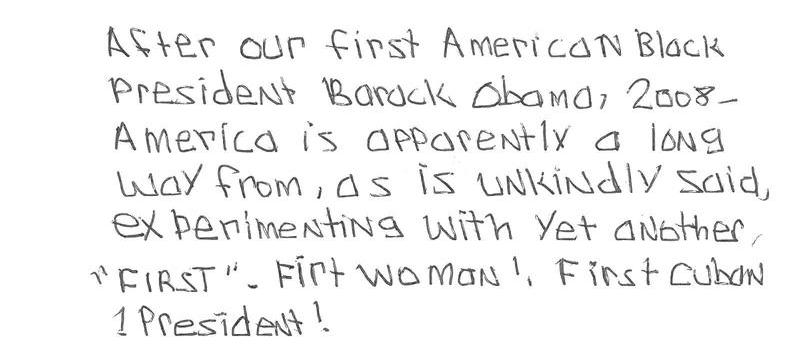 After our first American Black
President Barack Obama, 2008-
America is apparently a long
way from, as is unkindly said,
experimenting with yet another,
"FIRST"- Firt woman!, First Cuban
1 President!